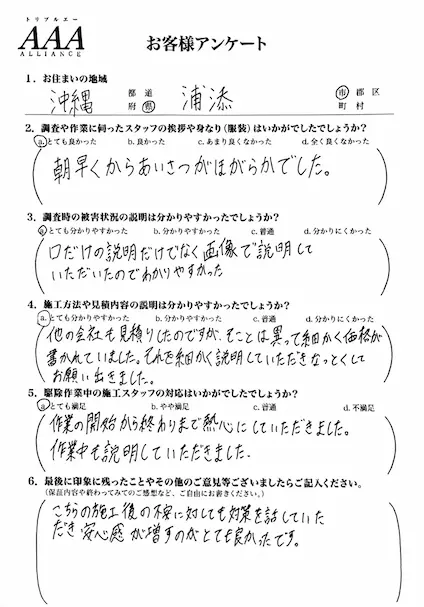 トリプルエー
AAA
ALLIANCE
お客様アンケート
1．お住まいの地域
沖縄 都 道 府 県 浦添 市 郡 区 町 村
2．調査や作業に伺ったスタッフの挨拶や身なり（服装）はいかがでしたでしょうか？
a.とても良かった b.良かった c.あまり良くなかった d.全く良くなかった
朝早くからあいさつがほがらかでした。
3．調査時の被害状況の説明は分かりやすかったでしょうか？
a.とても分かりやすかった b.分かりやすかった c.普通 d.分かりにくかった
口だけの説明だけでなく画像で説明して
いただいたのでわかりやすかった
4．施工方法や見積内容の説明は分かりやすかったでしょうか？
a.とても分かりやすかった b.分かりやすかった c.普通 d.分かりにくかった
他の会社も見積りしたのですが、そことは異って細かく価格が
書かれていました。それを細かく説明していただきなっとくして
お願い出きました。
5．駆除作業中の施工スタッフの対応はいかがでしたでしょうか？
a.とても満足 b.やや満足 c.普通 d.不満足
作業の開始から終わりまで熱心にしていただきました。
作業中も説明していただきました.
6．最後に印象に残ったことやその他のご意見等ございましたらご記入ください。
（保証内容や終わってみてのご感想など、ご自由にお書きください。）
こちらの施工後の不安に対しても対策を話していた
だき安心感が増すのがとても良かったです。